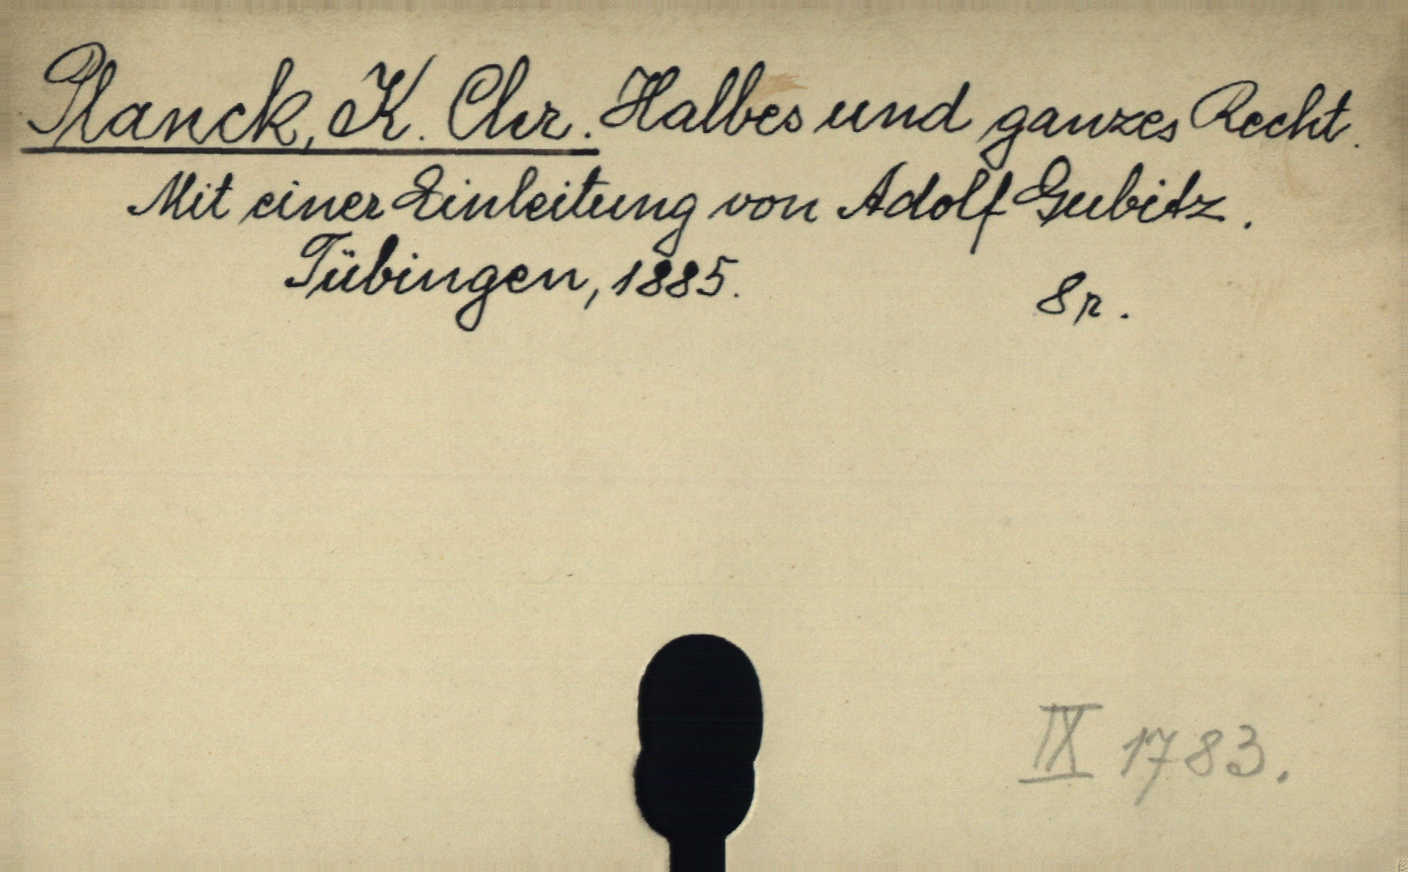 Planck, K. Chr. Halbes und ganzes Recht.
Mit einer Einleitung von Adolf Gubitz.
Tübingen, 1885.
8r.
IX 1783.